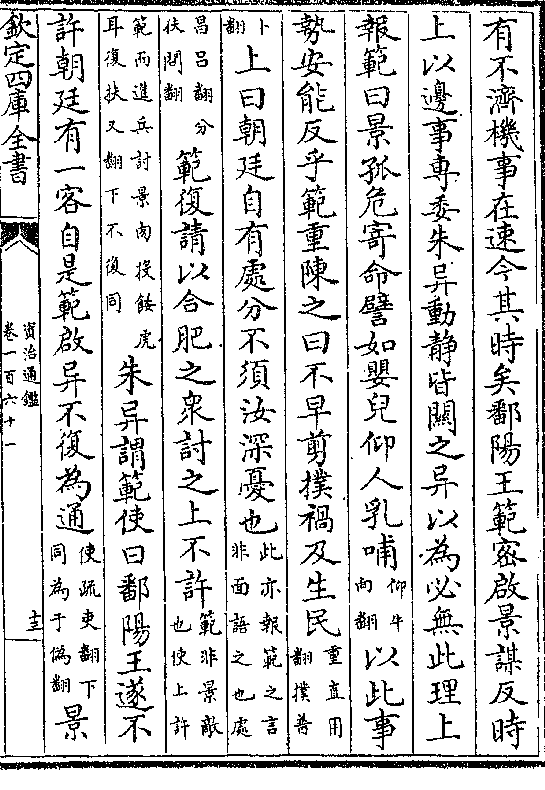 有不濟機事在速今其時矣鄱陽王範密啟景謀反時
上以邊事専委朱异動静皆關之异以為必無此理上
報範曰景孤危寄命譬如嬰兒仰人乳哺仰牛向翻以此事
勢安能反乎範重陳之曰不早剪撲禍及生民重直用翻撲普
卜翻上曰朝廷自有處分不須汝深憂也此亦報範之言非面語之也處
昌呂翻分扶問翻範復請以合肥之衆討之上不許範非景敵也使上許
範而進兵討景肉投餧虎耳復扶又翻下不復同朱异謂範使曰鄱陽王遂不
許朝廷有一客自是範啟异不復為通使疏吏翻下同為于偽翻景
欽定四庫全書
資治通鑑
卷一百六十一
十三